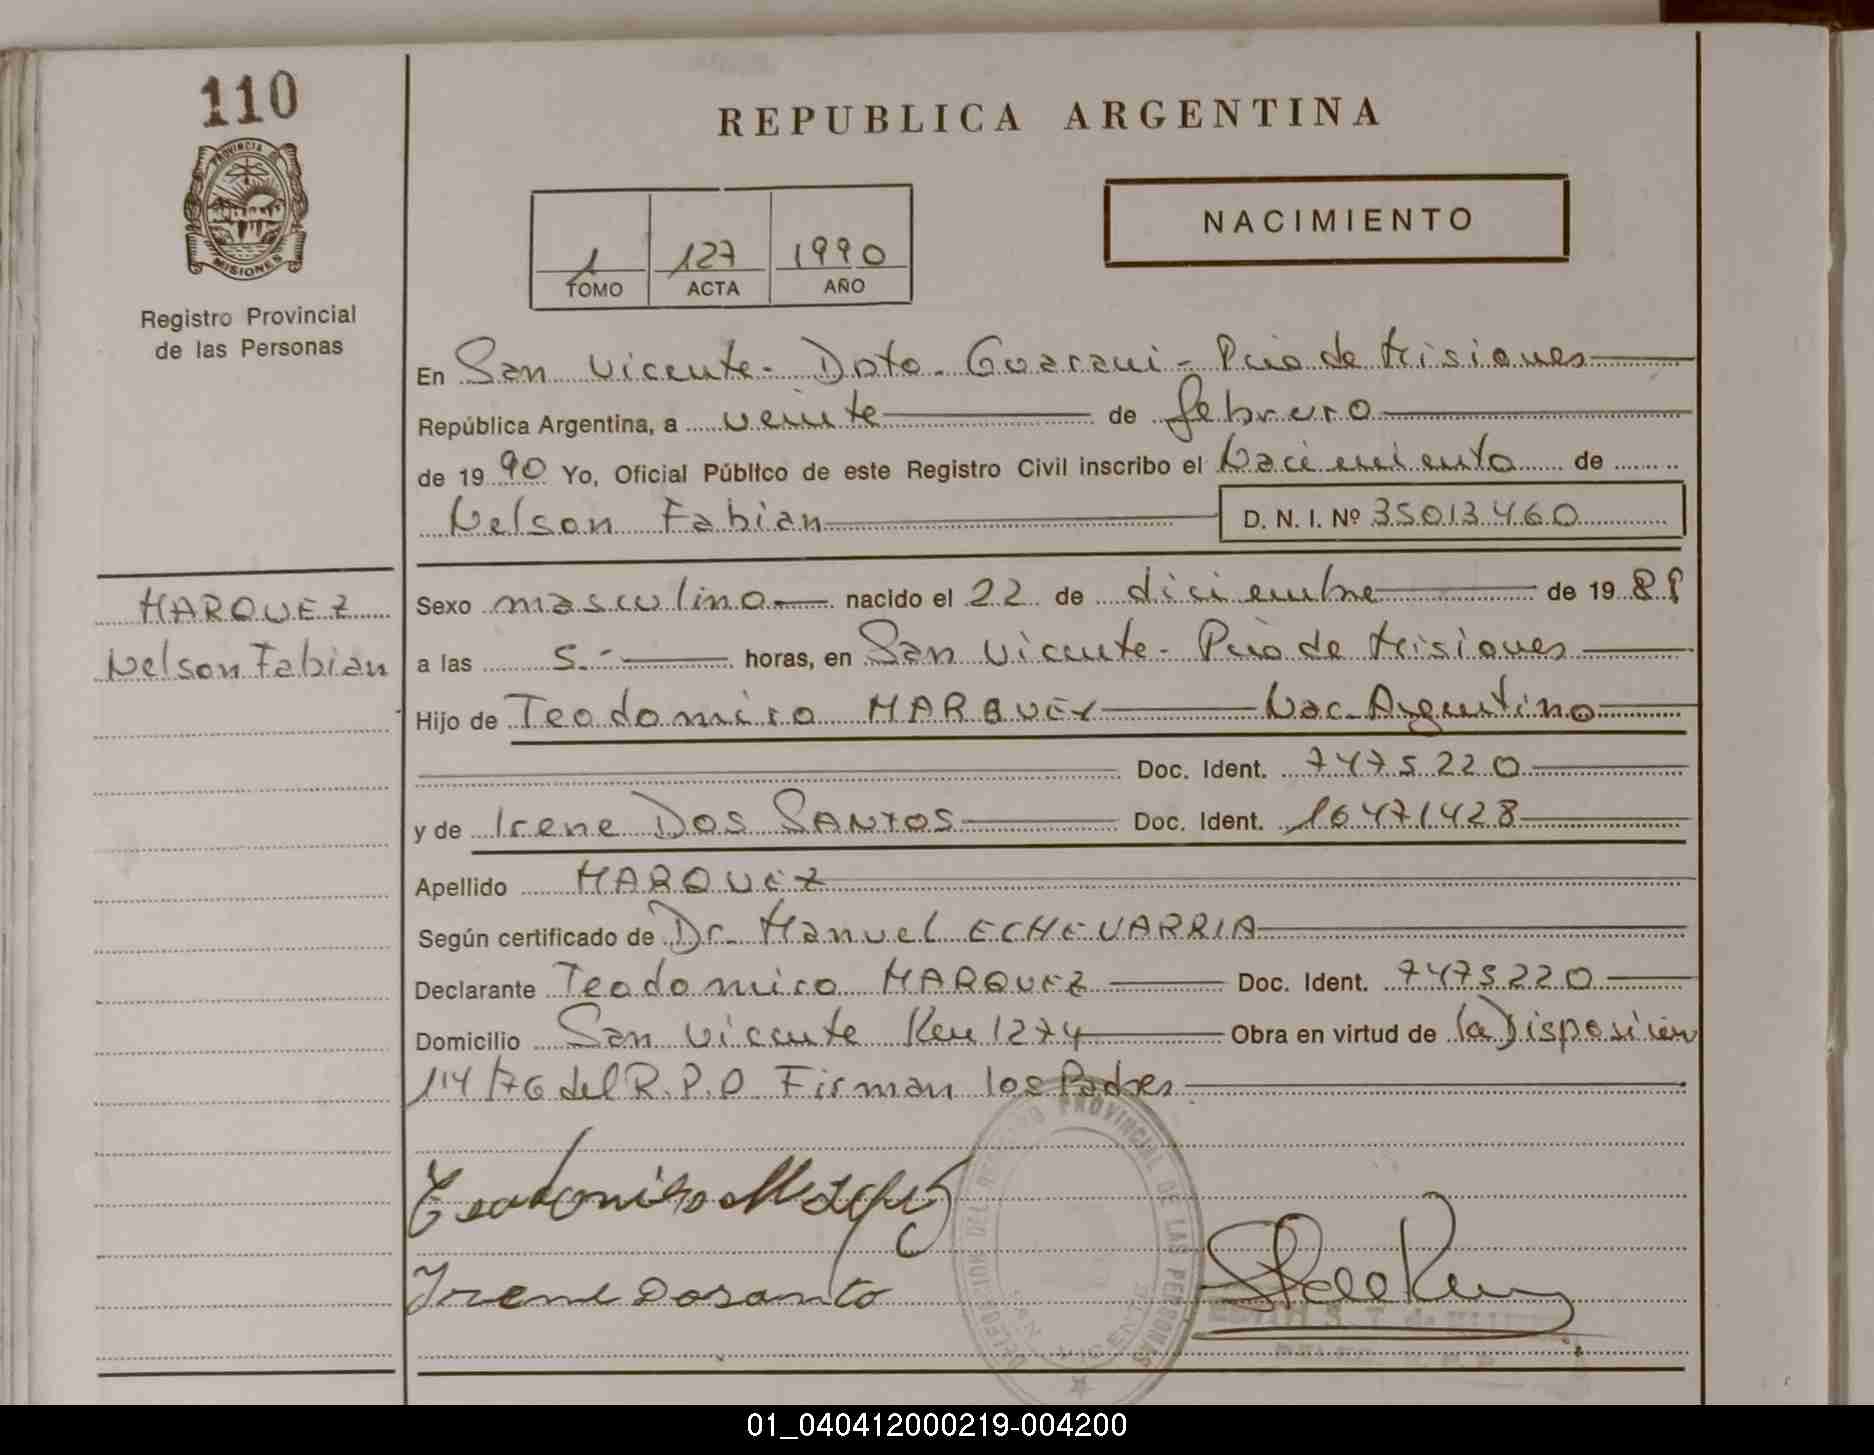 110
PROVINCIA DE
MISIONES
Registro Provincial
de las Personas
REPUBLICA ARGENTINA
1 127 1990
TOMO ACTA AÑO
NACIMIENTO
En San Vicente - Dpto. Guarani - Pcia de Misiones
República Argentina, a veinte de febrero
de 1990 Yo, Oficial Público de este Registro Civil inscribo el Nacimiento de
Nelson Fabian D. N. I. Nº 35013460
MARQUEZ
Nelson Fabian
Sexo masculino nacido el 22 de diciembre de 19
a las 5.- horas, en San Vicente - Pcia de Misiones
Hijo de Teodomiro MARQUEZ Nac. Argentino
Doc. Ident. 7475220
y de Irene DOS SANTOS Doc. Ident. 16471428
Apellido MARQUEZ
Según certificado de Dr. Manuel ECHEVARRIA
Declarante Teodomiro MARQUEZ Doc. Ident. 7475220
Domicilio San Vicente Km 1274 Obra en virtud de la Disposición
114/76 del R.P.P Firman los Padres
Irene Dosanto
PROVINCIAL DE LAS PERSONAS
SAN VICENTE
01_040412000219-004200